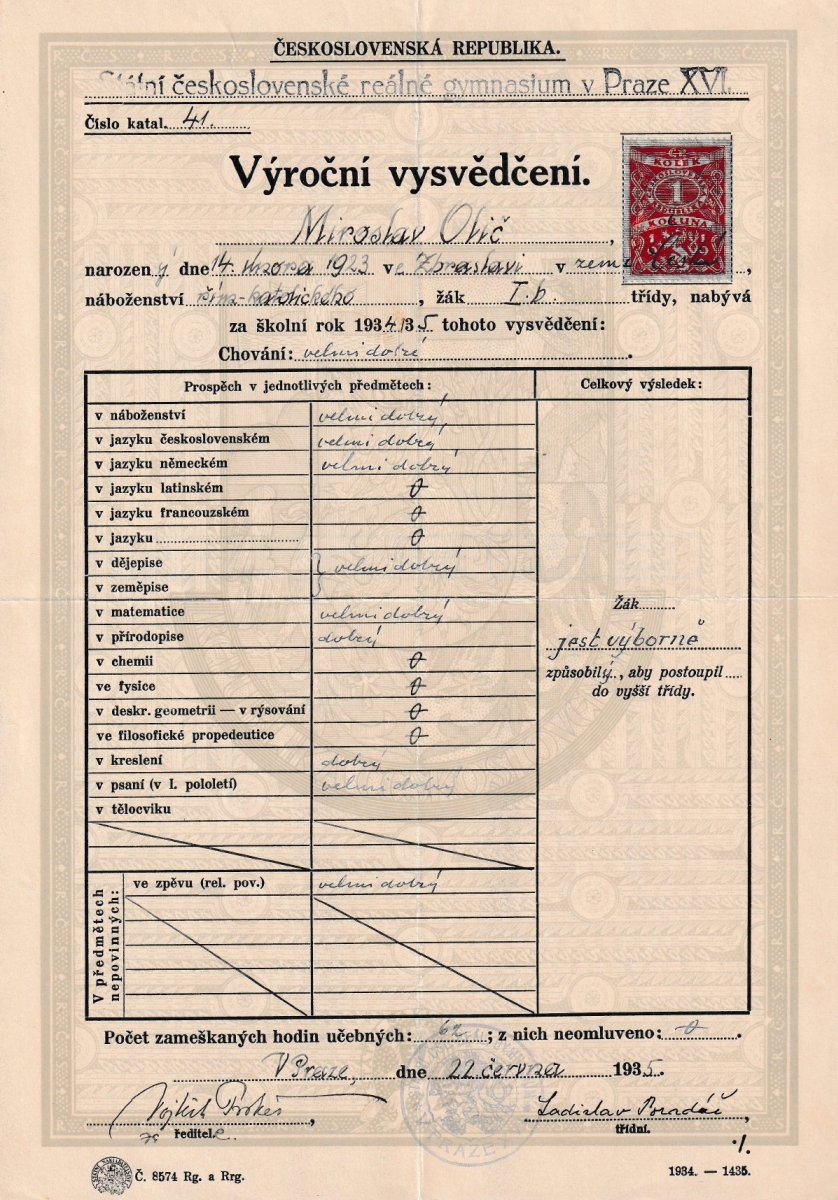 ČESKOSLOVENSKÁ REPUBLIKA.
Státní československé reálné gymnasium v Praze XVI.
Číslo katal. 41.
Výroční vysvědčení.
KOLEK
1
KORUNA
Miroslav Olič,
narozený dne 14. února 1923 ve Zbraslavi v zemi České,
náboženství řím.-katolického, žák I.b. třídy, nabývá
za školní rok 1934/35 tohoto vysvědčení:
Chování: velmi dobré.
Prospěch v jednotlivých předmětech: Celkový výsledek:
v náboženství velmi dobrý
v jazyku československém velmi dobrý
v jazyku německém velmi dobrý
v jazyku latinském 0
v jazyku francouzském 0
v jazyku 0
v dějepise velmi dobrý
v zeměpise
v matematice velmi dobrý
v přírodopise dobrý
v chemii 0
ve fysice 0
v deskr. geometrii — v rýsování 0
ve filosofické propedeutice 0
v kreslení dobrý
v psaní (v I. pololetí) velmi dobrý
v tělocviku
Žák
jest výborně
způsobilý, aby postoupil
do vyšší třídy.
V předmětech nepovinných:
ve zpěvu (rel. pov.) velmi dobrý
Počet zameškaných hodin učebných: 62; z nich neomluveno: 0.
V Praze, dne 22. června 1935.
ředitele. Ladislav
třídní.
./.
Č. 8574 Rg. a Rrg. 1934. — 1435.